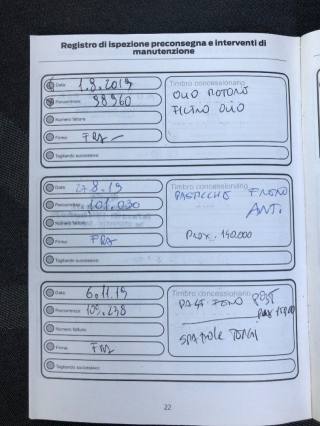 Registro di ispezione preconsegna e interventi di
manutenzione
Data 1.8.2019
Timbro concessionario
Percorrenza 98960
OLIO MOTORE
FILTRO OLIO
Numero fattura
Firma FRA
Tagliando successivo
Data 27.8.19
Timbro concessionario
PASTICCHE FRENO
Percorrenza 101.030
ANT.
Numero fattura
Firma FRA
PROX. 140.000
Tagliando successivo
Data 6.11.19
Timbro concessionario
PAST FRENO POST
Percorrenza 105.238
Numero fattura
SPAZZOLE TERGI
Firma FRA
Tagliando successivo
22